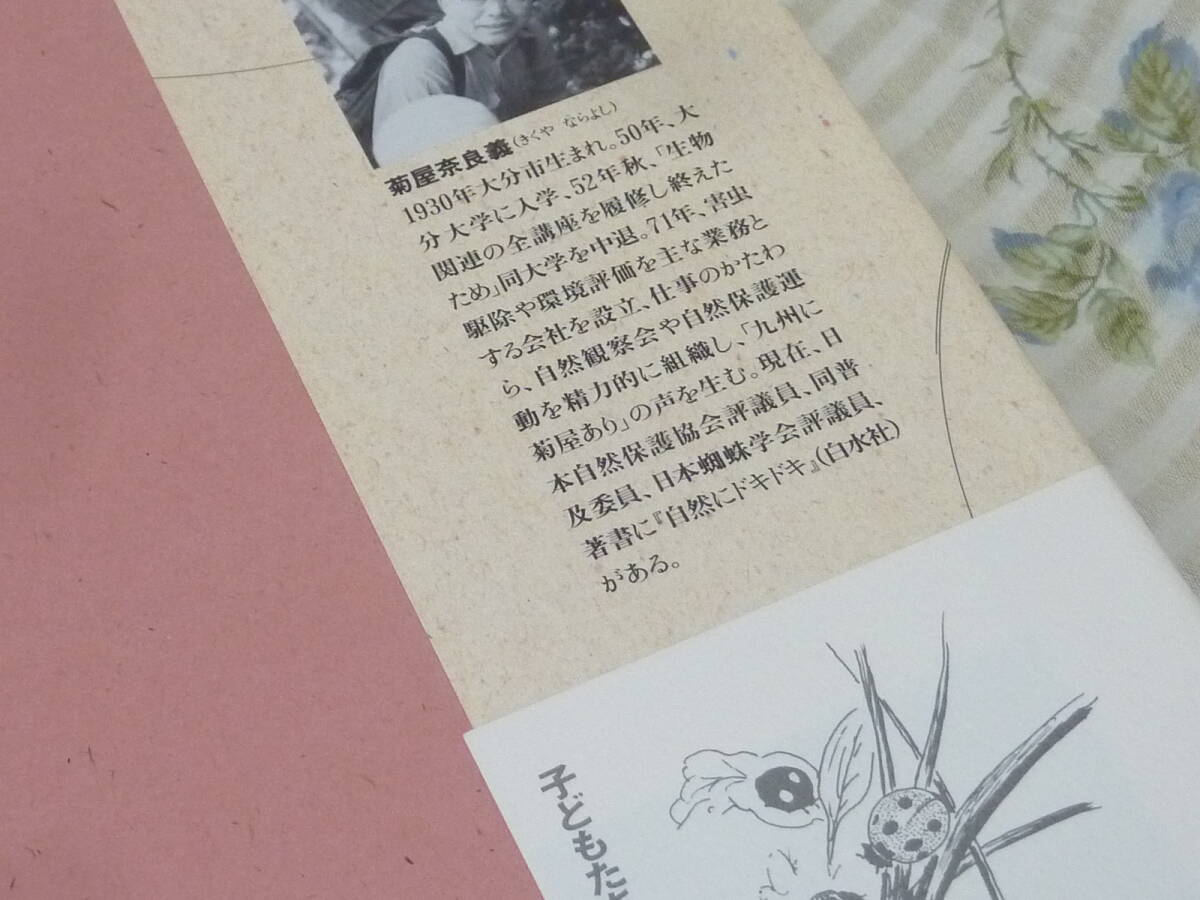 菊屋奈良義(きくや ならよし)
1930年大分市生まれ。50年、大
分大学に入学、52年秋、「生物
関連の全講座を履修し終えた
ため」同大学を中退。71年、害虫
駆除や環境評価を主な業務と
する会社を設立、仕事のかたわ
ら、自然観察会や自然保護運
動を精力的に組織し、「九州に
菊屋あり」の声を生む。現在、日
本自然保護協会評議員、同普
及委員、日本蜘蛛学会評議員、
著書に『自然にドキドキ』(白水社)
がある。
子どもた